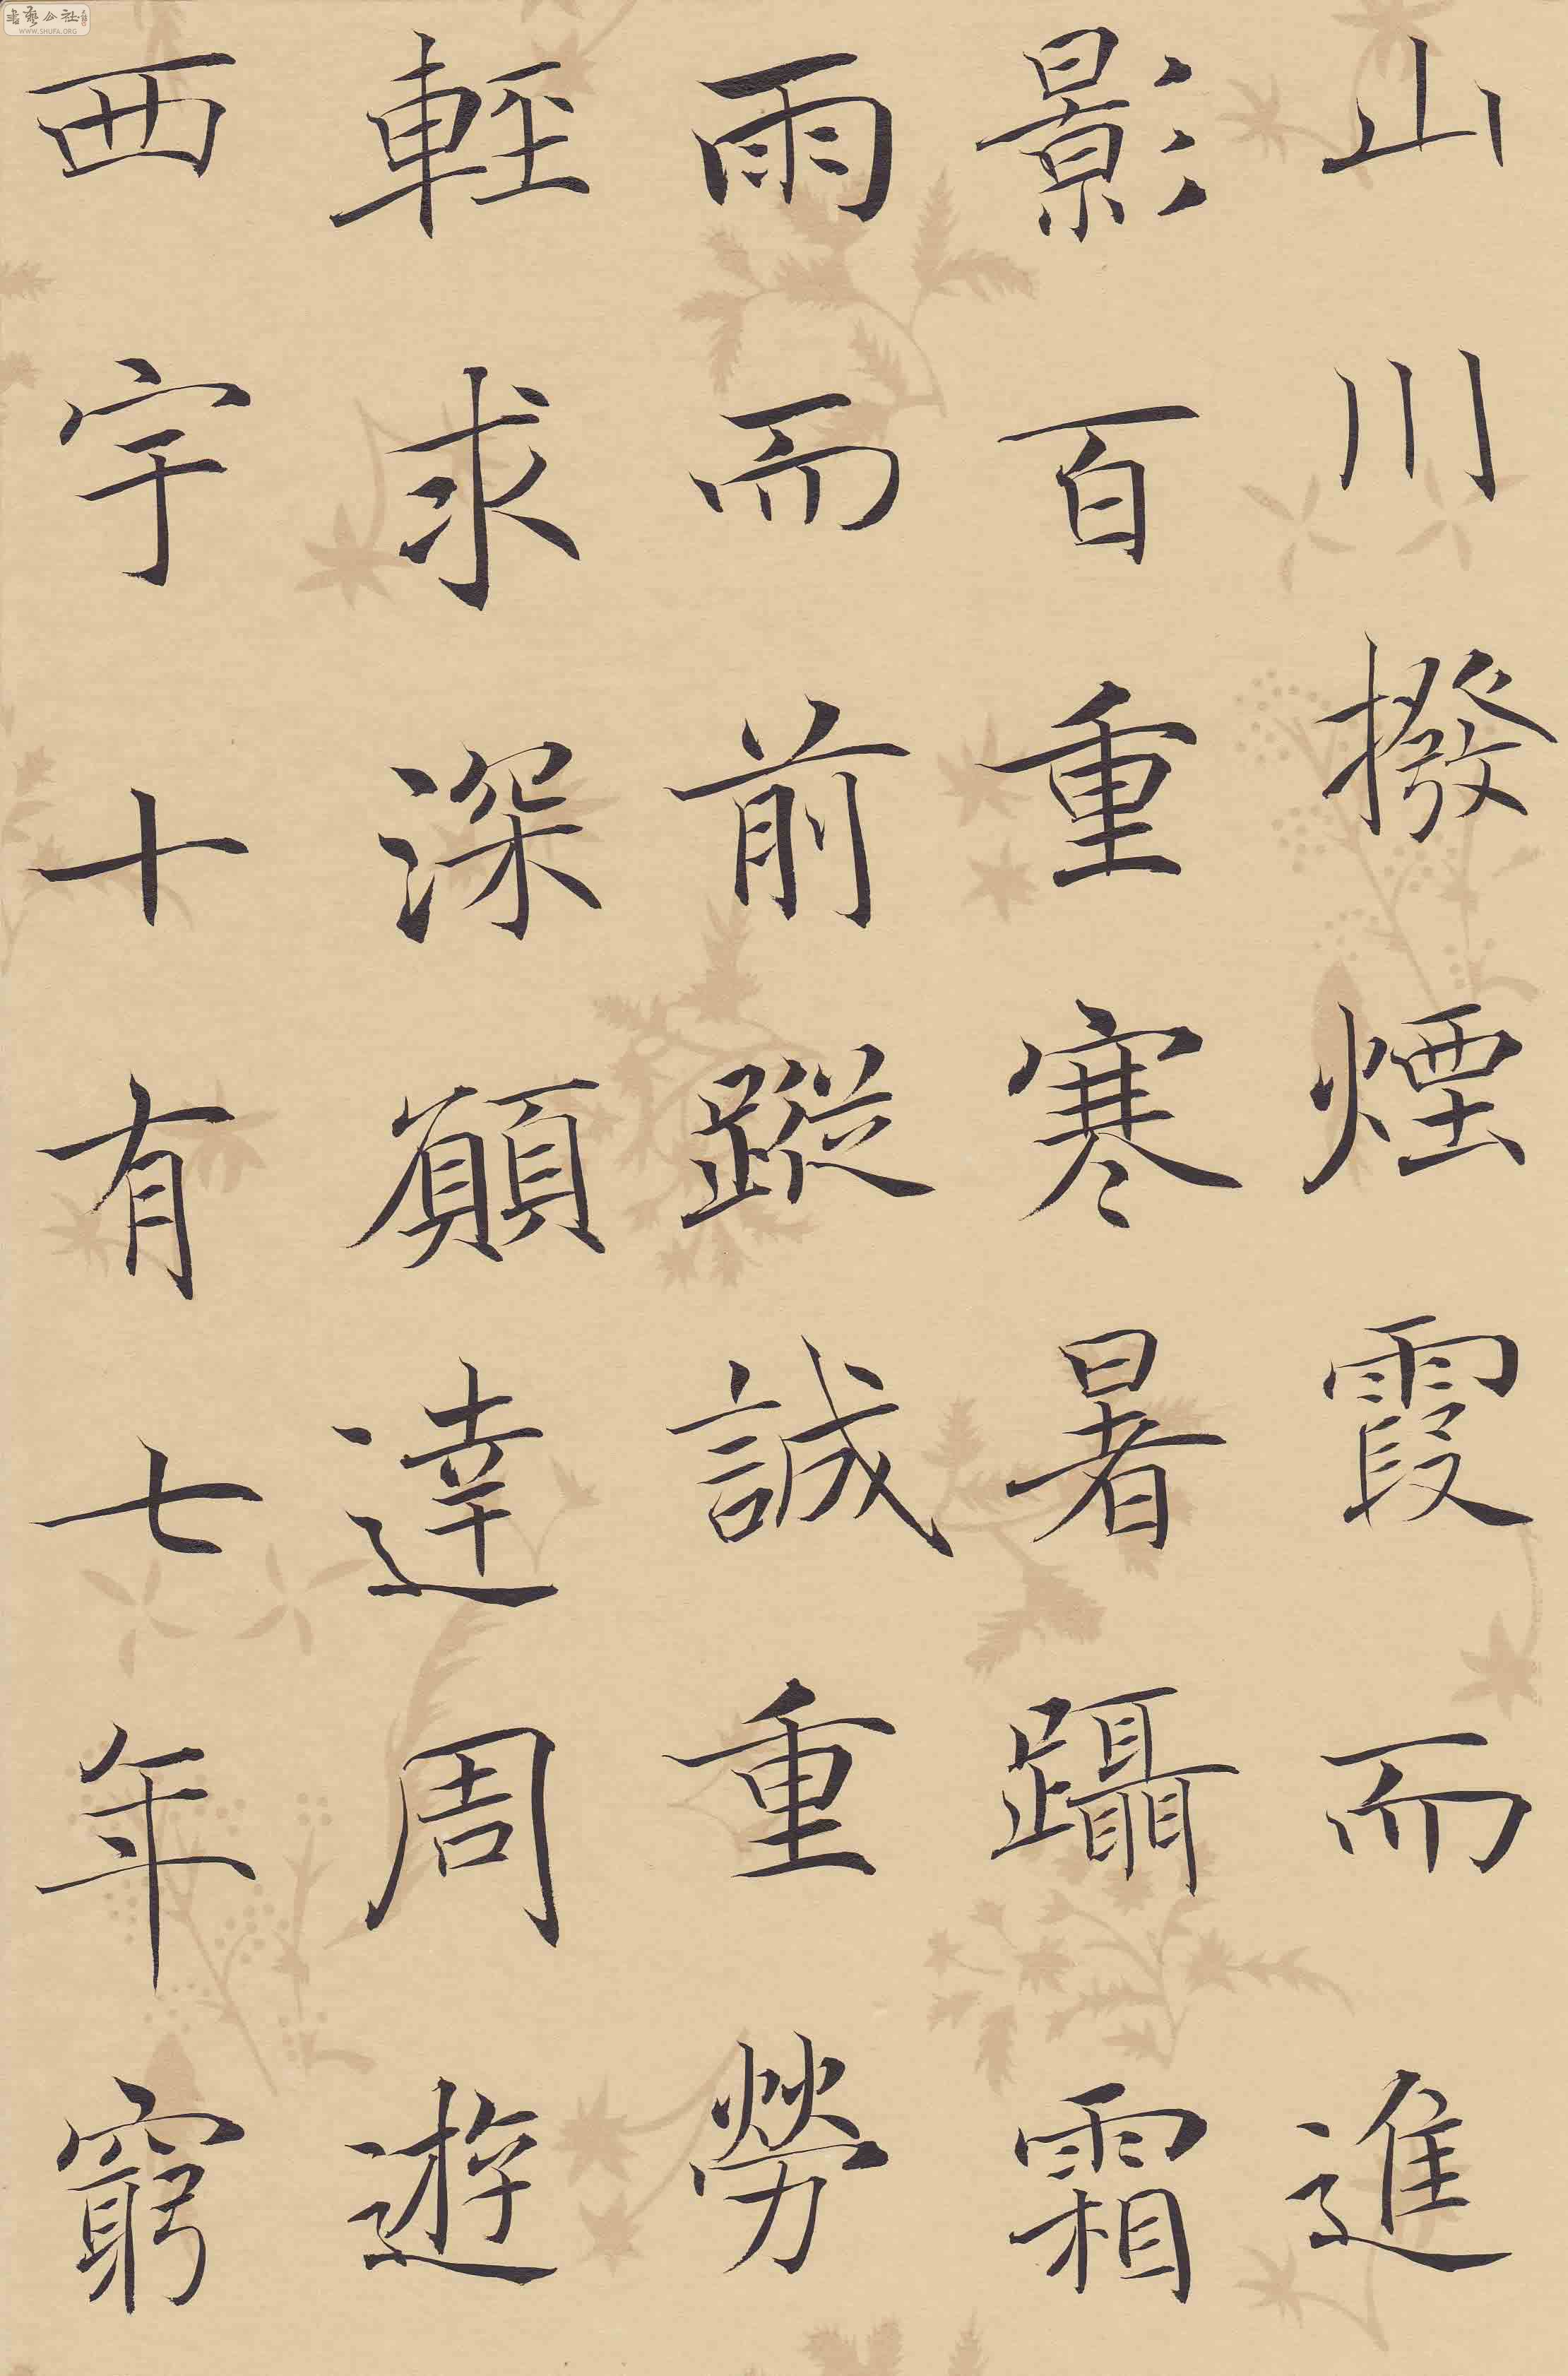 山川撥煙霞而進
影百重寒暑躡霜
雨而前蹤誠重勞
輕求深願達周遊
西宇十有七年窮
書藝公社
WWW.SHUFA.ORG